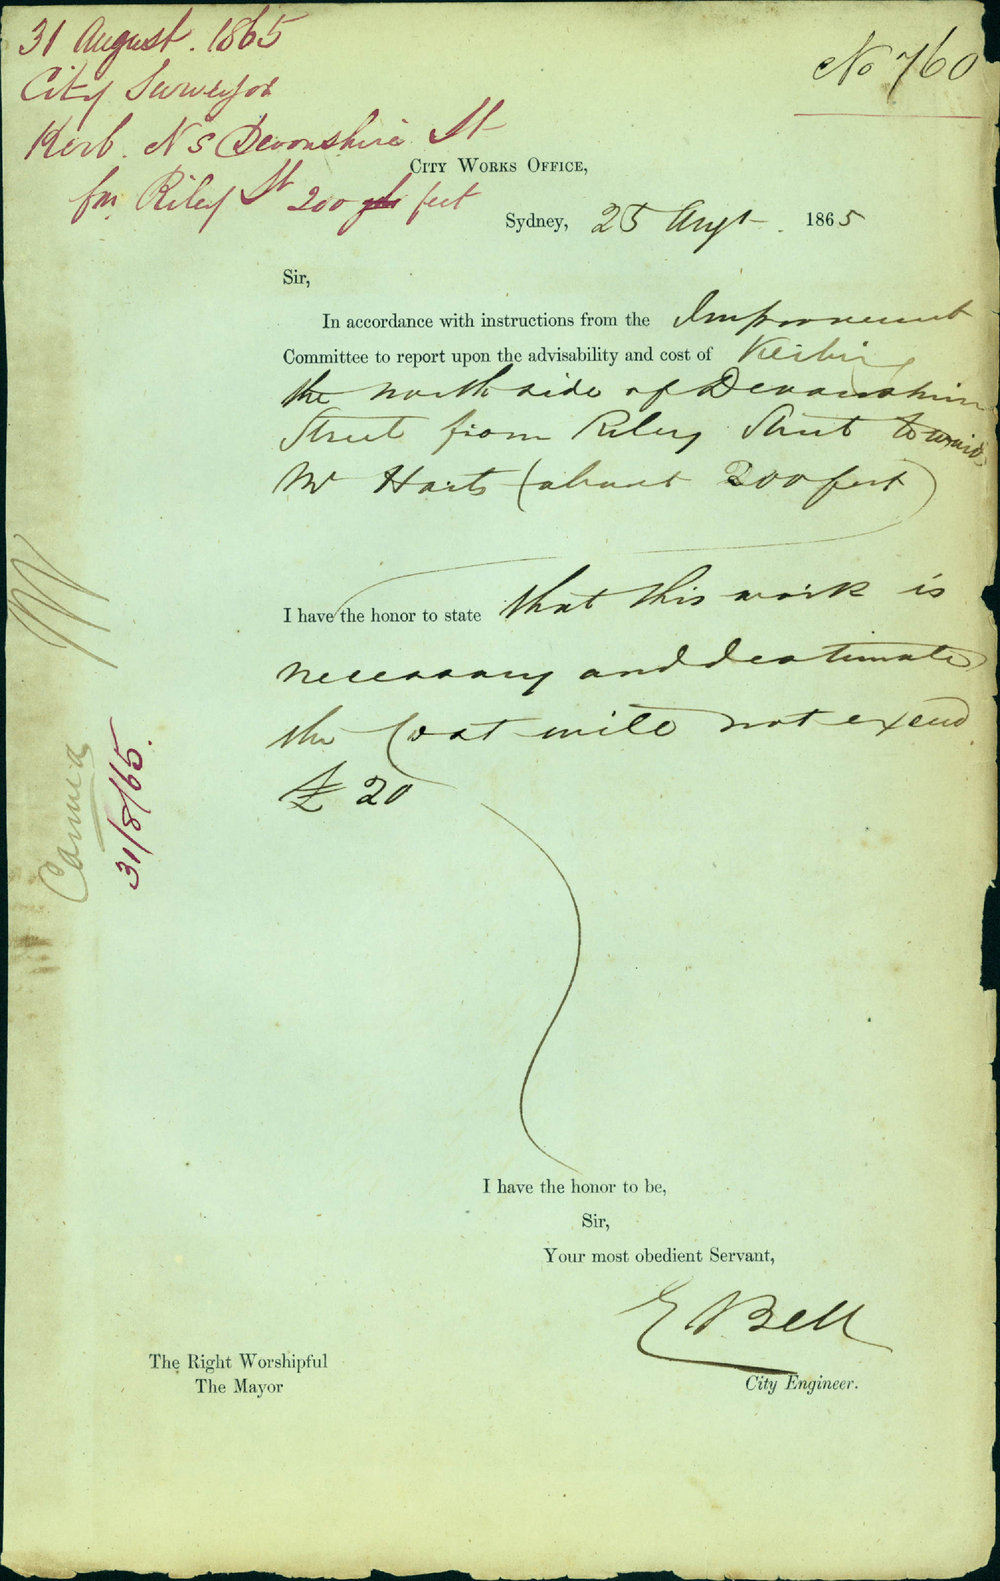 31 August. 1865
City Surveyor
Kerb. N S Devonshire St
fm Riley St 200 yds feet
No 760
City Works Office,
Sydney, 25 Augt. 1865
Sir,
In accordance with instructions from the Improvement
Committee to report upon the advisability and cost of Kerbing
the north side of Devonshire
Street from Riley Street towards
Mr Harts (about 200 feet)
I have the honor to state that this work is
necessary and I estimate
the Cost will not exceed
£ 20
Carried
31/8/65.
I have the honor to be,
Sir,
Your most obedient Servant,
E Bell
City Engineer.
The Right Worshipful
The Mayor